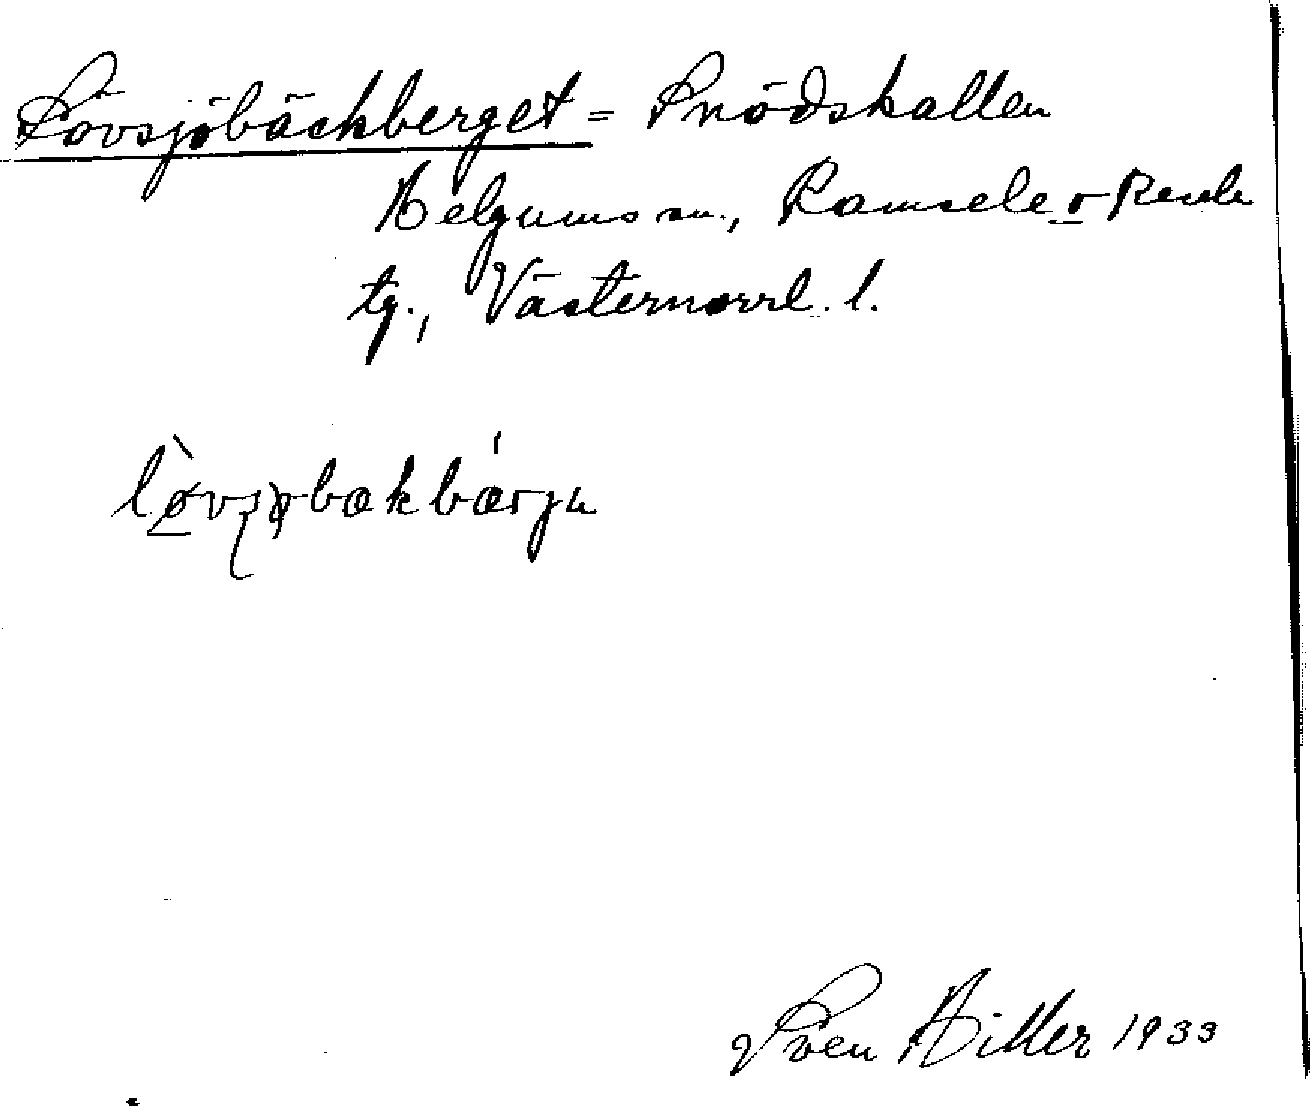 Lövsjöbäckberget = Snödskallen
Helgums sn., Ramsele o Resele
tg., Västernorrl. l.
Sven Hiller 1933